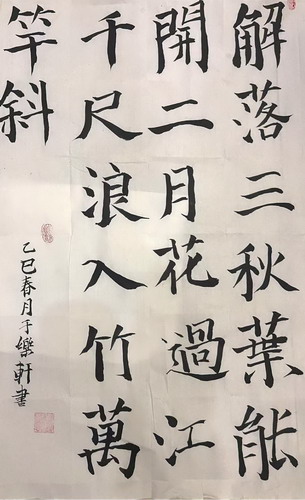 解落三秋葉能
開二月花過江
千尺浪入竹萬
竿斜
乙巳春月于軒書